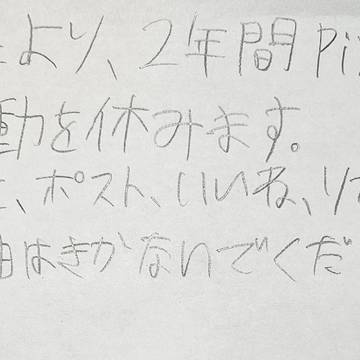 より、2年間pi
動を休みます。
、ポスト、いいね、リ
由はきかないでくだ